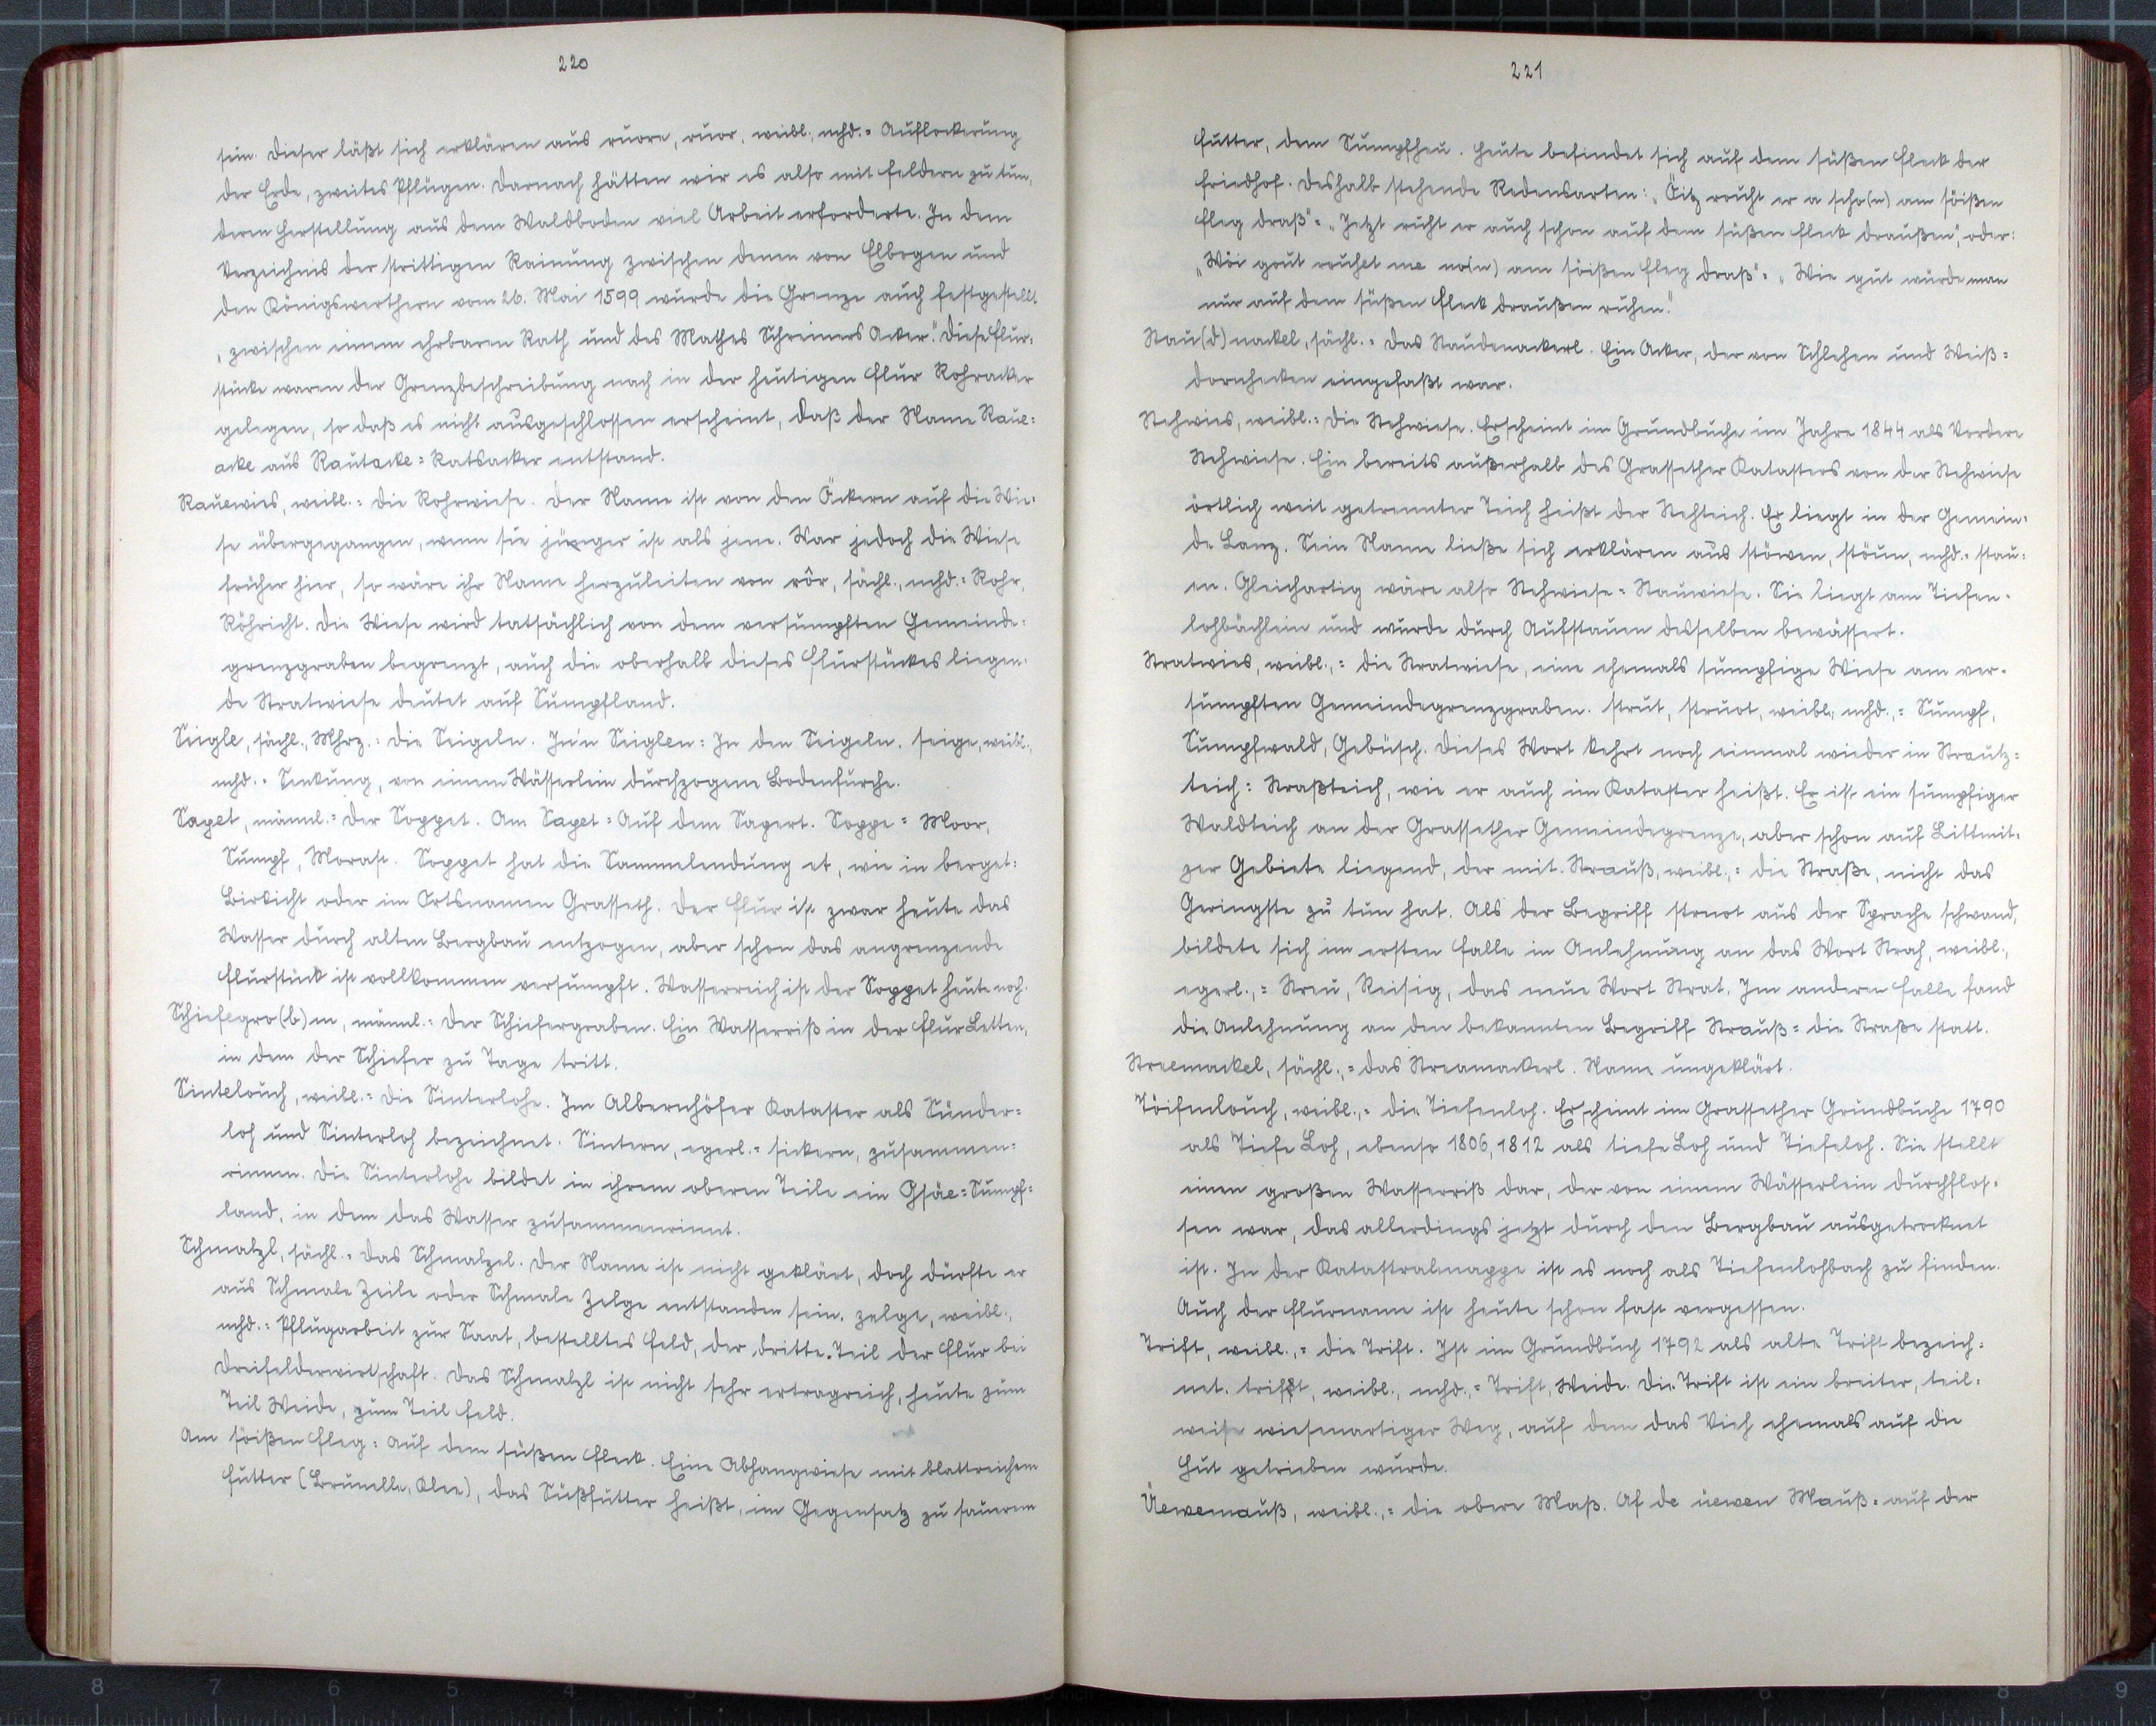 220
sein. Dieser läßt sich erklären aus ruore, ruor, weibl., mhd. = Auflockerung
der Erde, zweites Pflügen. Darnach hätten wir es also mit Feldern zu tun,
deren Herstellung aus dem Waldboden viel Arbeit erforderte. In dem
Verzeichnis der strittigen Rainung zwischen denen von Elbogen und
den Königswerthern vom 26. Mai 1599 wurde die Grenze auch festgestellt
„zwischen einem ehrbaren Rath und des Mathes Schreiners Acker." Diese Flur-
stücke waren der Grenzbeschreibung nach in der heutigen Flur Rohracker
gelegen, so daß es nicht ausgeschlossen erscheint, daß der Name Raue-
acke aus Rautacke = Ratsacker entstand.
Rauewies, weibl. = die Rohrwiese. Der Name ist von den Äckern auf die Wie-
se übergegangen, wenn sie jünger ist als jene. War jedoch die Wiese
früher hier, so wäre ihr Name herzuleiten von rôr, sächl., mhd. = Rohr,
Röhricht. Die Wiese wird tatsächlich von dem versumpften Gemeinde-
grenzgraben begrenzt, auch die oberhalb dieses Flurstückes liegen-
de Stratwiese deutet auf Sumpfland.
Seigle, sächl., Mhrz. = die Seigeln. In'n Seiglen = In den Seigeln. seige, weibl.,
mhd. = Senkung, von einem Wässerlein durchzogene Bodenfurche.
Saget, männl. = der Sopget. Am Saget = Auf dem Sagert. Soppe = Moor,
Sumpf, Morast. Sopget hat die Sammelendung et, wie in berget =
Birkicht oder im Ortsnamen Grasseth. Der Flur ist zwar heute das
Wasser durch alten Bergbau entzogen, aber schon das angrenzende
Flurstück ist vollkommen versumpft. Wasserreich ist der Sopget heute noch.
Schiefegro(b)m, männl. = der Schiefergraben. Ein Wasserriß in der Flur Letten,
in dem der Schiefer zu Tage tritt.
Sintelouch, weibl. = die Sinterlohe. Im Albernhöfer Kataster als Sünder-
loh und Sinterloh bezeichnet. Sintern, egerl. = sickern, zusammen-
rinnen. Die Sinterlohe bildet in ihrem oberen Teile ein Gsäe = Sumpf-
land, in dem das Wasser zusammenrinnt.
Schmalzl, sächl. = das Schmalzel. Der Name ist nicht geklärt, doch dürfte er
aus Schmale Zeile oder Schmale Zelge entstanden sein. zelge, weibl.,
mhd. = Pflugarbeit zur Saat, bestelltes Feld, der dritte Teil der Flur bei
Dreifelderwirtschaft. Das Schmalzl ist nicht sehr ertragreich, heute zum
Teil Weide, zum Teil Feld.
Am söißen Fleg = Auf dem süßen Fleck. Eine Abhangwiese mit blattreichem
Futter (Brunelle, Klee), das Süßfutter heißt, im Gegensatz zu sauerem
221
Futter, dem Sumpfheu. Heute befindet sich auf dem süßen Fleck der
Friedhof. Deshalb stehende Redensarten: „Öitz rouht er a scho(n) am söißen
Fleg draß" = „Jetzt ruht er auch schon auf dem süßen Fleck draußen", oder:
„Wöi gout rouhet me no(n) am söißen Fleg draß" = „Wie gut würde man
nur auf dem süßen Fleck draußen ruhen."
Stau(d)nackel, sächl. = das Staudenackerl. Ein Acker, der von Schlehen und Weiß-
dornhecken eingefaßt war.
Stehwies, weibl. = die Stehwiese. Erscheint im Grundbuche im Jahre 1844 als Vordere
Stehwiese. Ein bereits außerhalb des Grassether Katasters von der Stehwiese
örtlich weit getrennter Teich heißt der Stehteich. Er liegt in der Gemein-
de Lanz. Sein Name ließe sich erklären aus stöwen, stöun, mhd. = stau-
en. Gleichartig wäre also Stehwiese = Stauwiese. Sie liegt am Tiefen-
lohbächlein und wurde durch Aufstauen desselben bewässert.
Stratwies, weibl., = die Stratwiese, eine ehemals sumpfige Wiese am ver-
sumpften Gemeindegrenzgraben. strut, struot, weibl., mhd., = Sumpf,
Sumpfwald, Gebüsch. Dieses Wort kehrt noch einmal wieder in Strautz-
teich = Straßteich, wie er auch im Kataster heißt. Er ist ein sumpfiger
Waldteich an der Grassether Gemeindegrenze, aber schon auf Littmit-
zer Gebiete liegend, der mit Strauß, weibl., = die Straße, nicht das
Geringste zu tun hat. Als der Begriff struot aus der Sprache schwand,
bildete sich im ersten Falle in Anlehnung an das Wort Strah, weibl.,
egerl., = Streu, Reisig, das neue Wort Strat. Im anderen Falle fand
die Anlehnung an den bekannten Begriff Strauß = die Straße statt.
Streemackel, sächl., = das Streamackerl. Name ungeklärt.
Töifenlouch, weibl., = die Tiefenloh. Erscheint im Grassether Grundbuche 1790
als Tiefe Loh, ebenso 1806, 1812 als tiefe Loh und Tiefeloh. Sie stellt
einen großen Wasserriß dar, der von einem Wässerlein durchflos-
sen war, das allerdings jetzt durch den Bergbau ausgetrocknet
ist. In der Katastralmappe ist es noch als Tiefenlohbach zu finden.
Auch der Flurname ist heute schon fast vergessen.
Trift, weibl., = die Trift. Ist im Grundbuch 1792 als alte Trift bezeich-
net. trift, weibl., mhd., = Trift, Weide. Die Trift ist ein breiter, teil-
weise wiesenartiger Weg, auf dem das Vieh ehemals auf die
Hut getrieben wurde.
Üewemauß, weibl., = die obere Maß. Af de üewen Mauß = auf der